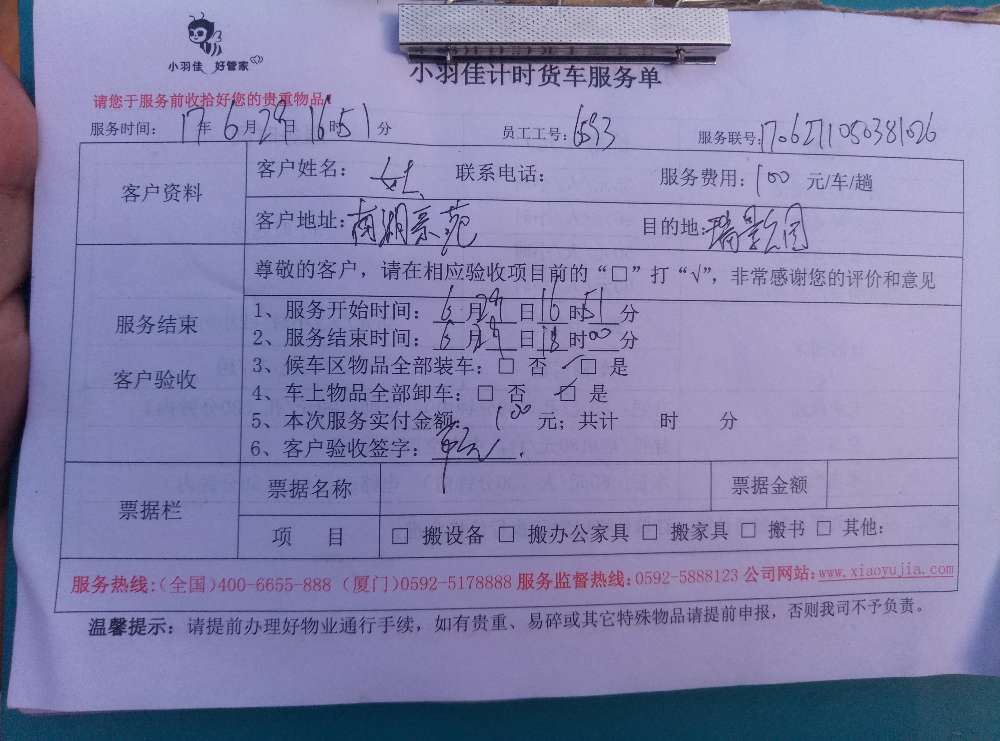 小羽佳 好管家
小羽佳计时货车服务单
请您于服务前收拾好您的贵重物品!
服务时间: 17年6月29日16时51分 员工工号:6593 服务联号:1706271050381026
客户资料
客户姓名: 联系电话: 服务费用:100 元/车/趟
客户地址:南湖豪苑 目的地:瑞景公园
服务结束
客户验收
尊敬的客户，请在相应验收项目前的“□”打“√”，非常感谢您的评价和意见
1、服务开始时间: 6月29日16时51分
2、服务结束时间: 6月29日18时00分
3、候车区物品全部装车: □ 否 ✓□ 是
4、车上物品全部卸车: □ 否 ✓□ 是
5、本次服务实付金额: 100 元; 共计 时 分
6、客户验收签字:
票据栏
票据名称 票据金额
项 目 □ 搬设备 □ 搬办公家具 □ 搬家具 □ 搬书 □ 其他:
服务热线:(全国)400-6655-888 (厦门)0592-5178888 服务监督热线:0592-5888123 公司网站:www.xiaoyujia.com
温馨提示: 请提前办理好物业通行手续，如有贵重、易碎或其它特殊物品请提前申报，否则我司不予负责。